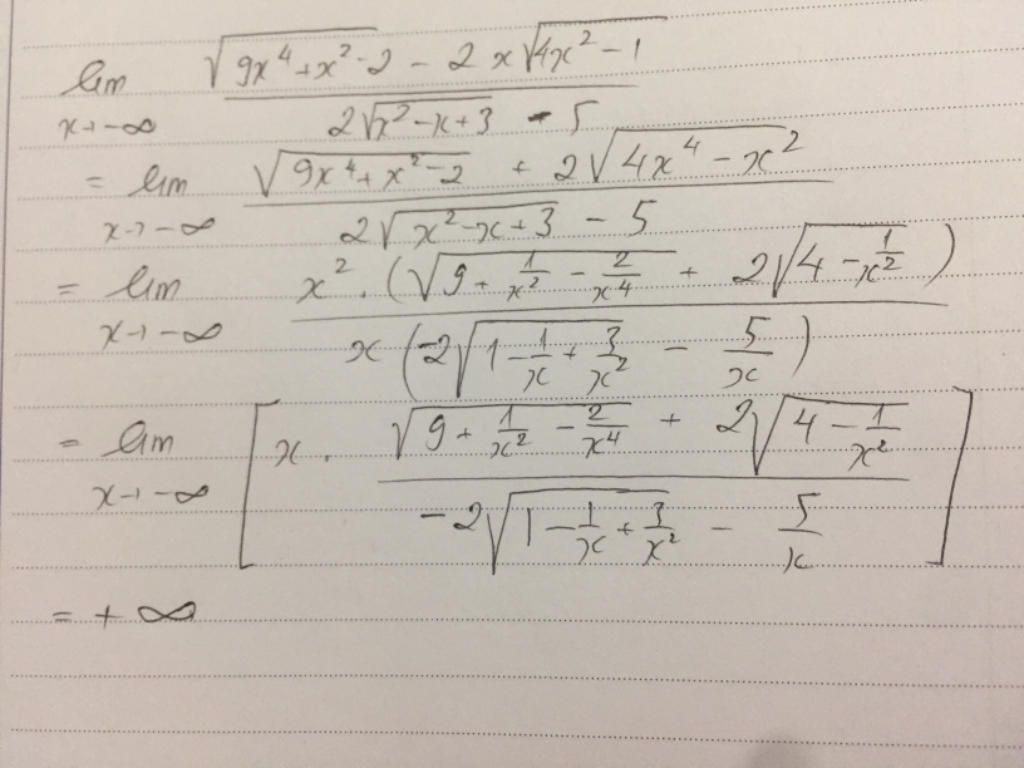 lim x→-∞ (√(9x⁴+x²-2) - 2x√(4x²-1)) / (2√(x²-x+3) - 5)
= lim x→-∞ (√(9x⁴+x²-2) + 2√(4x⁴-x²)) / (2√(x²-x+3) - 5)
= lim x→-∞ (x².(√(9+1/x²-2/x⁴) + 2√(4-1/x²))) / (x(-2√(1-1/x+3/x²) - 5/x))
= lim x→-∞ [x. (√(9+1/x²-2/x⁴) + 2√(4-1/x²)) / (-2√(1-1/x+3/x²) - 5/x)]
= +∞